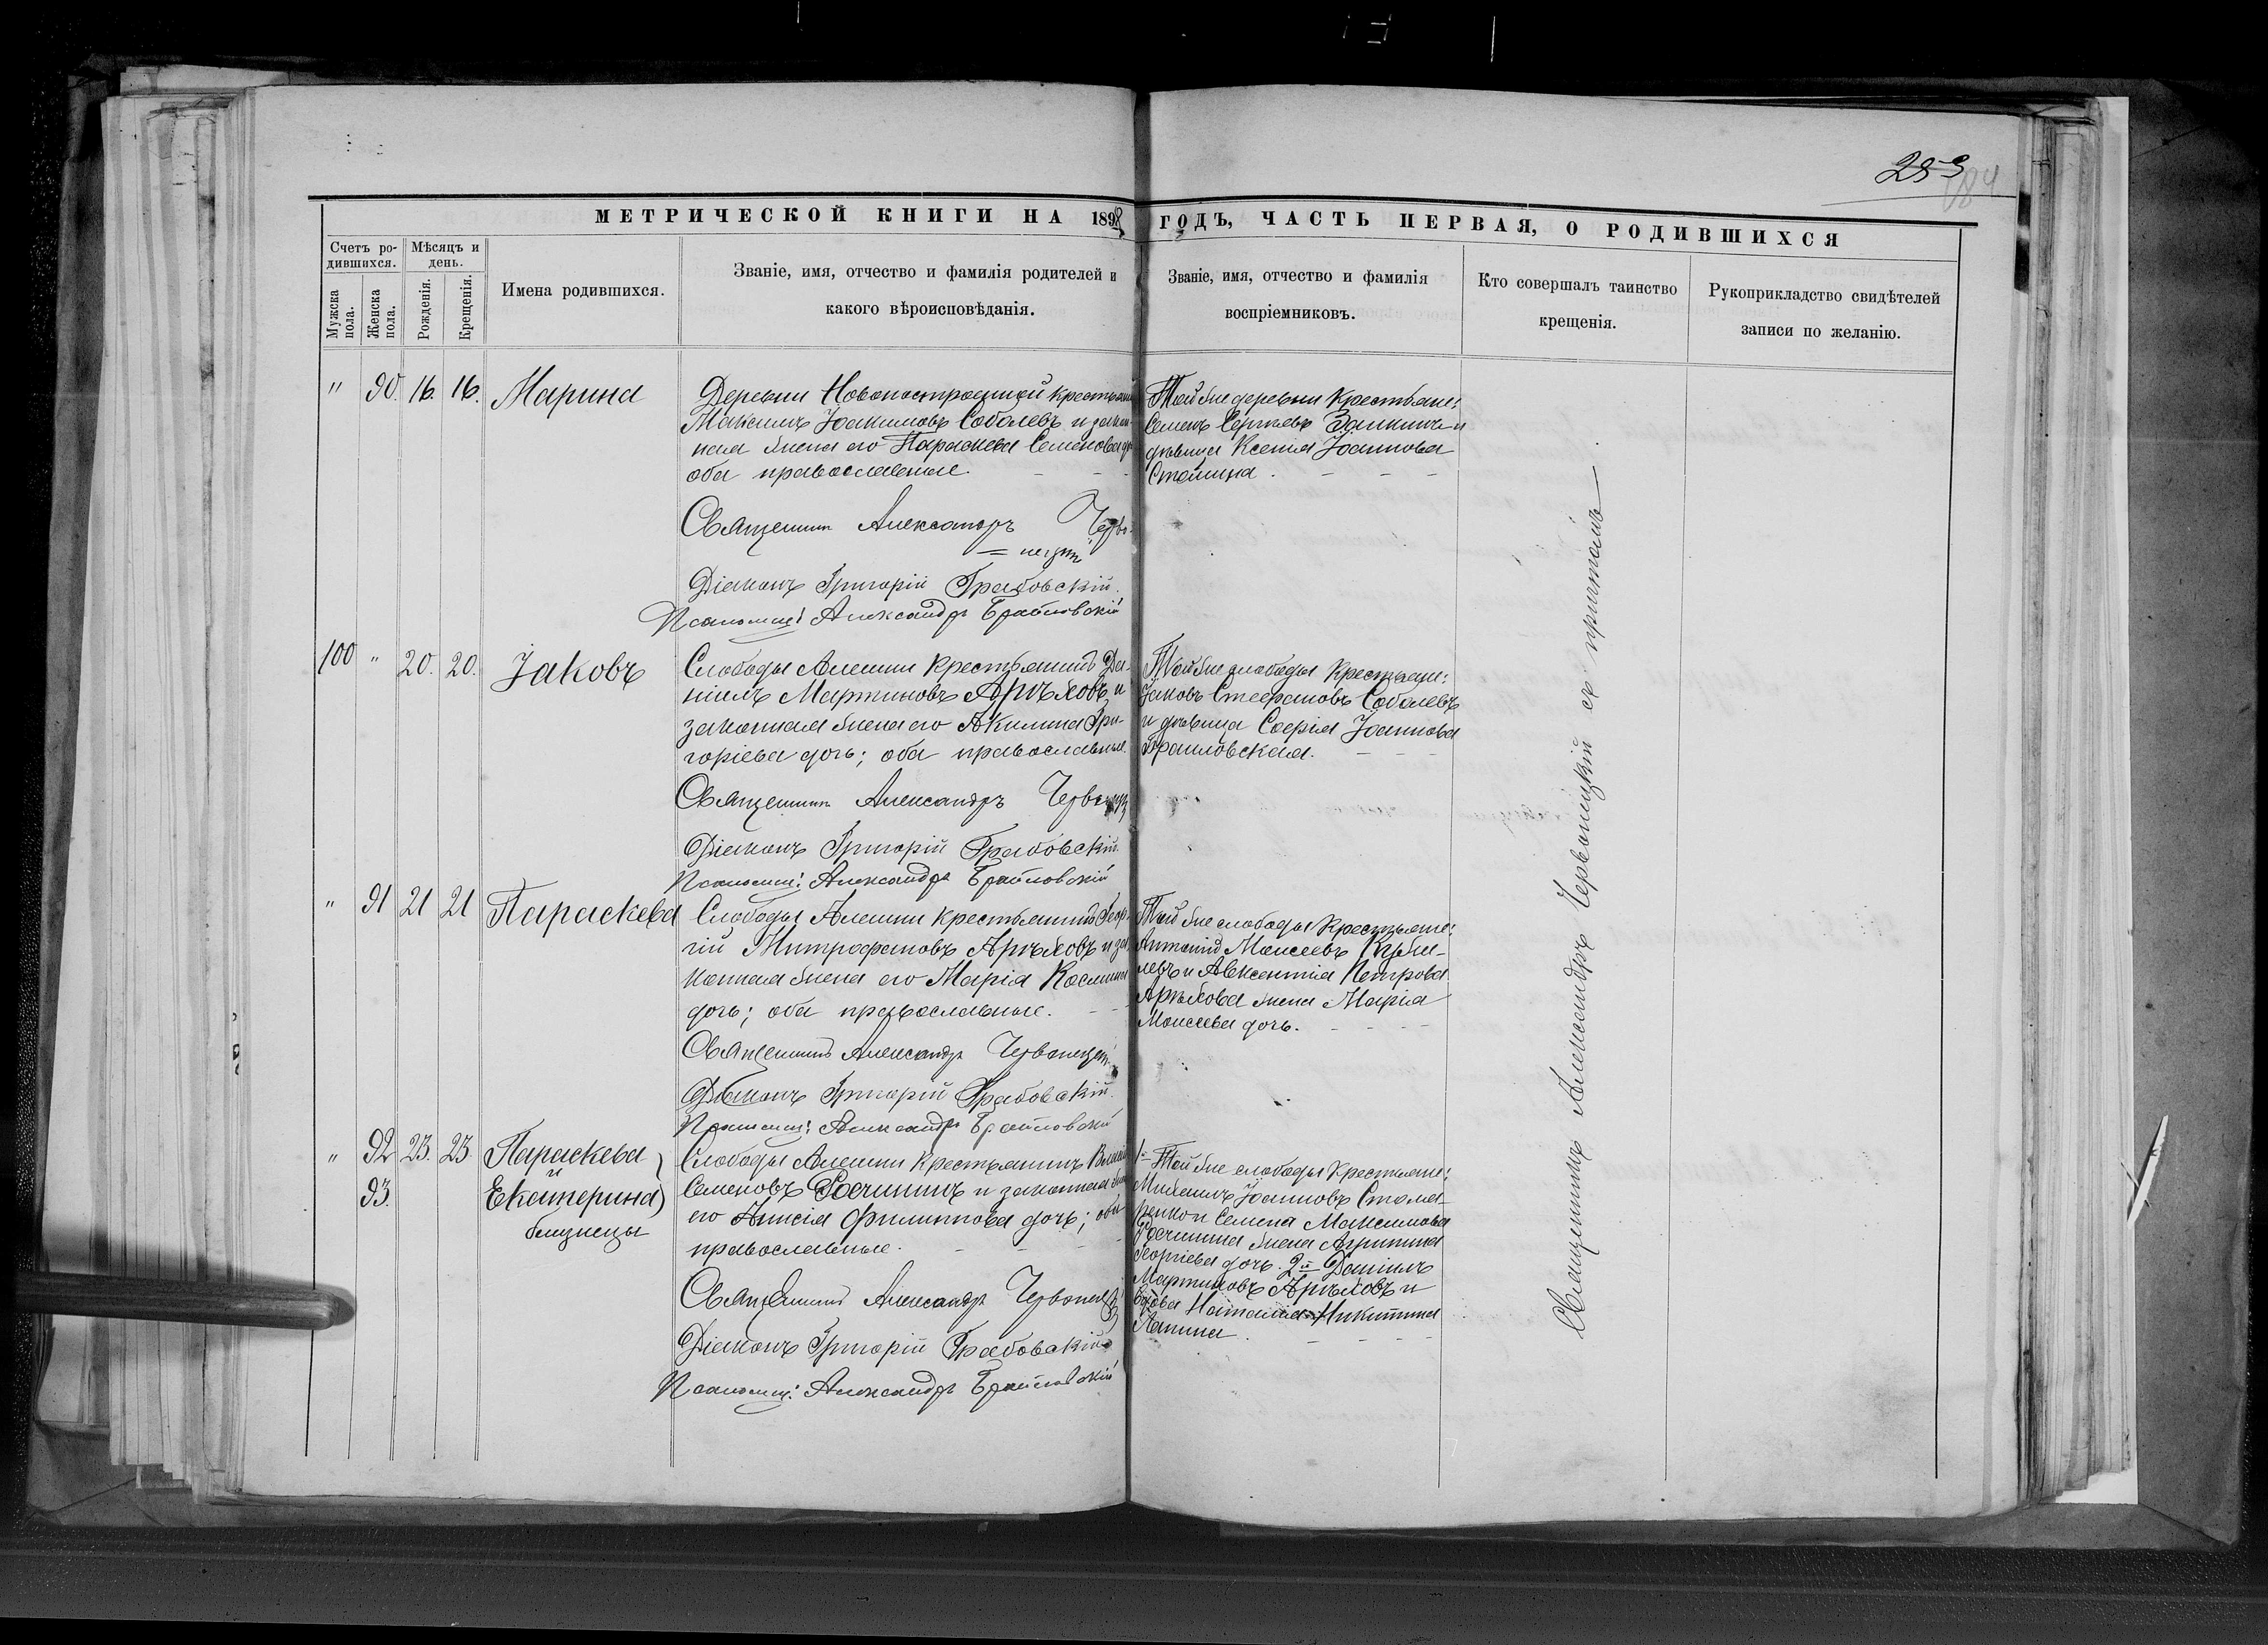 253
184
МЕТРИЧЕСКОЙ КНИГИ НА 1898 ГОДЪ, ЧАСТЬ ПЕРВАЯ, О РОДИВШИХСЯ
Счетъ ро-
дившихся.
Мужска
пола.
Женска
пола.
Мѣсяцъ и
день.
Рожденія.
Крещенія.
Имена родившихся.
Званіе, имя, отчество и фамилія родителей и
какого вѣроисповѣданія.
Званіе, имя, отчество и фамилія
воспріемниковъ.
Кто совершалъ таинство
крещенія.
Рукоприкладство свидѣтелей
записи по желанію.
" 90. 16. 16. Марина
Деревни Новопостроенной крестьянинъ
Максимъ Іоакимовъ Соболевъ и закон-
ная жена его Параскева Семенова
оба православные.
Священник Александръ Черво-
= нецкій
Діаконъ Григорій Грабовскій.
Псаломщ: Александръ Браиловскій
Той же деревни крестьяне:
Семенъ Сергіевъ и
дѣвица Ксенія Іоаннова
100 " 20. 20. Іаковъ
Слободы Алешни крестьянинъ Да-
ніилъ Мартиновъ Арѣховъ и
законная жена его Акилина Гри-
горіева дочь; оба православные.
Священник Александръ
Діаконъ Григорій Грабовскій.
Псаломщ: Александръ Браиловскій
Той же слободы крестьяне:
Іаковъ Стефановъ Соболевъ
и дѣвица Софія Іоаннова
Браиловская.
" 91 21 21 Параскева
Слободы Алешни крестьянинъ Геор-
гій Митрофановъ Арѣховъ и за-
конная жена его Марія Космина
дочь; оба православные.
Священникъ Александръ Червонецкій
Діаконъ Григорій Грабовскій.
Псаломщ: Александръ Браиловскій
Той же слободы крестьяне:
Антоній Моисеевъ
левъ и Авксентія Петрова
Арѣхова жена Марія
Моисеева дочь.
" 92 23. 23. Параскева
и
93. Екатерина
близнецы
Слободы Алешни крестьянинъ
Семеновъ и законная жена
его Анисія Филиппова дочь; оба
православные.
Священникъ Александръ Червонецкій
Діаконъ Григорій Грабовскій
Псаломщ: Александръ Браиловскій
1-й Той же слободы крестьяне:
Михаилъ Іоанновъ
и Семена Максимова
жена Агрипина
Георгіева дочь. 2-й Даніилъ
Мартиновъ Арѣховъ и
вдова Наталія Никитина
Лапина
Священникъ Александръ Червонецкій съ причтомъ